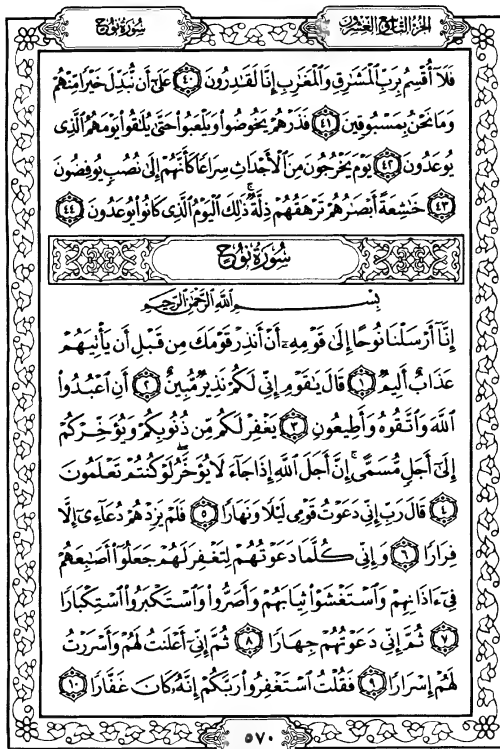 سُورَةُ نُوحٍ
الجُزْءُ التَّاسِعُ وَالعِشْرُونَ
فَلَآ أُقْسِمُ بِرَبِّ ٱلْمَشَٰرِقِ وَٱلْمَغَٰرِبِ إِنَّا لَقَٰدِرُونَ ٤٠ عَلَىٰٓ أَن نُّبَدِّلَ خَيْرًا مِّنْهُمْ
وَمَا نَحْنُ بِمَسْبُوقِينَ ٤١ فَذَرْهُمْ يَخُوضُوا۟ وَيَلْعَبُوا۟ حَتَّىٰ يُلَٰقُوا۟ يَوْمَهُمُ ٱلَّذِى
يُوعَدُونَ ٤٢ يَوْمَ يَخْرُجُونَ مِنَ ٱلْأَجْدَاثِ سِرَاعًا كَأَنَّهُمْ إِلَىٰ نُصُبٍ يُوفِضُونَ
٤٣ خَٰشِعَةً أَبْصَٰرُهُمْ تَرْهَقُهُمْ ذِلَّةٌ ۚ ذَٰلِكَ ٱلْيَوْمُ ٱلَّذِى كَانُوا۟ يُوعَدُونَ ٤٤
سُورَةُ نُوحٍ
بِسْمِ ٱللَّهِ ٱلرَّحْمَٰنِ ٱلرَّحِيمِ
إِنَّآ أَرْسَلْنَا نُوحًا إِلَىٰ قَوْمِهِۦٓ أَنْ أَنذِرْ قَوْمَكَ مِن قَبْلِ أَن يَأْتِيَهُمْ
عَذَابٌ أَلِيمٌ ١ قَالَ يَٰقَوْمِ إِنِّى لَكُمْ نَذِيرٌ مُّبِينٌ ٢ أَنِ ٱعْبُدُوا۟
ٱللَّهَ وَٱتَّقُوهُ وَأَطِيعُونِ ٣ يَغْفِرْ لَكُم مِّن ذُنُوبِكُمْ وَيُؤَخِّرْكُمْ
إِلَىٰٓ أَجَلٍ مُّسَمًّى ۚ إِنَّ أَجَلَ ٱللَّهِ إِذَا جَآءَ لَا يُؤَخَّرُ ۖ لَوْ كُنتُمْ تَعْلَمُونَ
٤ قَالَ رَبِّ إِنِّى دَعَوْتُ قَوْمِى لَيْلًا وَنَهَارًا ٥ فَلَمْ يَزِدْهُمْ دُعَآءِىٓ إِلَّا
فِرَارًا ٦ وَإِنِّى كُلَّمَا دَعَوْتُهُمْ لِتَغْفِرَ لَهُمْ جَعَلُوٓا۟ أَصَٰبِعَهُمْ
فِىٓ ءَاذَانِهِمْ وَٱسْتَغْشَوْا۟ ثِيَابَهُمْ وَأَصَرُّوا۟ وَٱسْتَكْبَرُوا۟ ٱسْتِكْبَارًا
٧ ثُمَّ إِنِّى دَعَوْتُهُمْ جِهَارًا ٨ ثُمَّ إِنِّىٓ أَعْلَنتُ لَهُمْ وَأَسْرَرْتُ
لَهُمْ إِسْرَارًا ٩ فَقُلْتُ ٱسْتَغْفِرُوا۟ رَبَّكُمْ إِنَّهُۥ كَانَ غَفَّارًا ١٠
٥٧٠